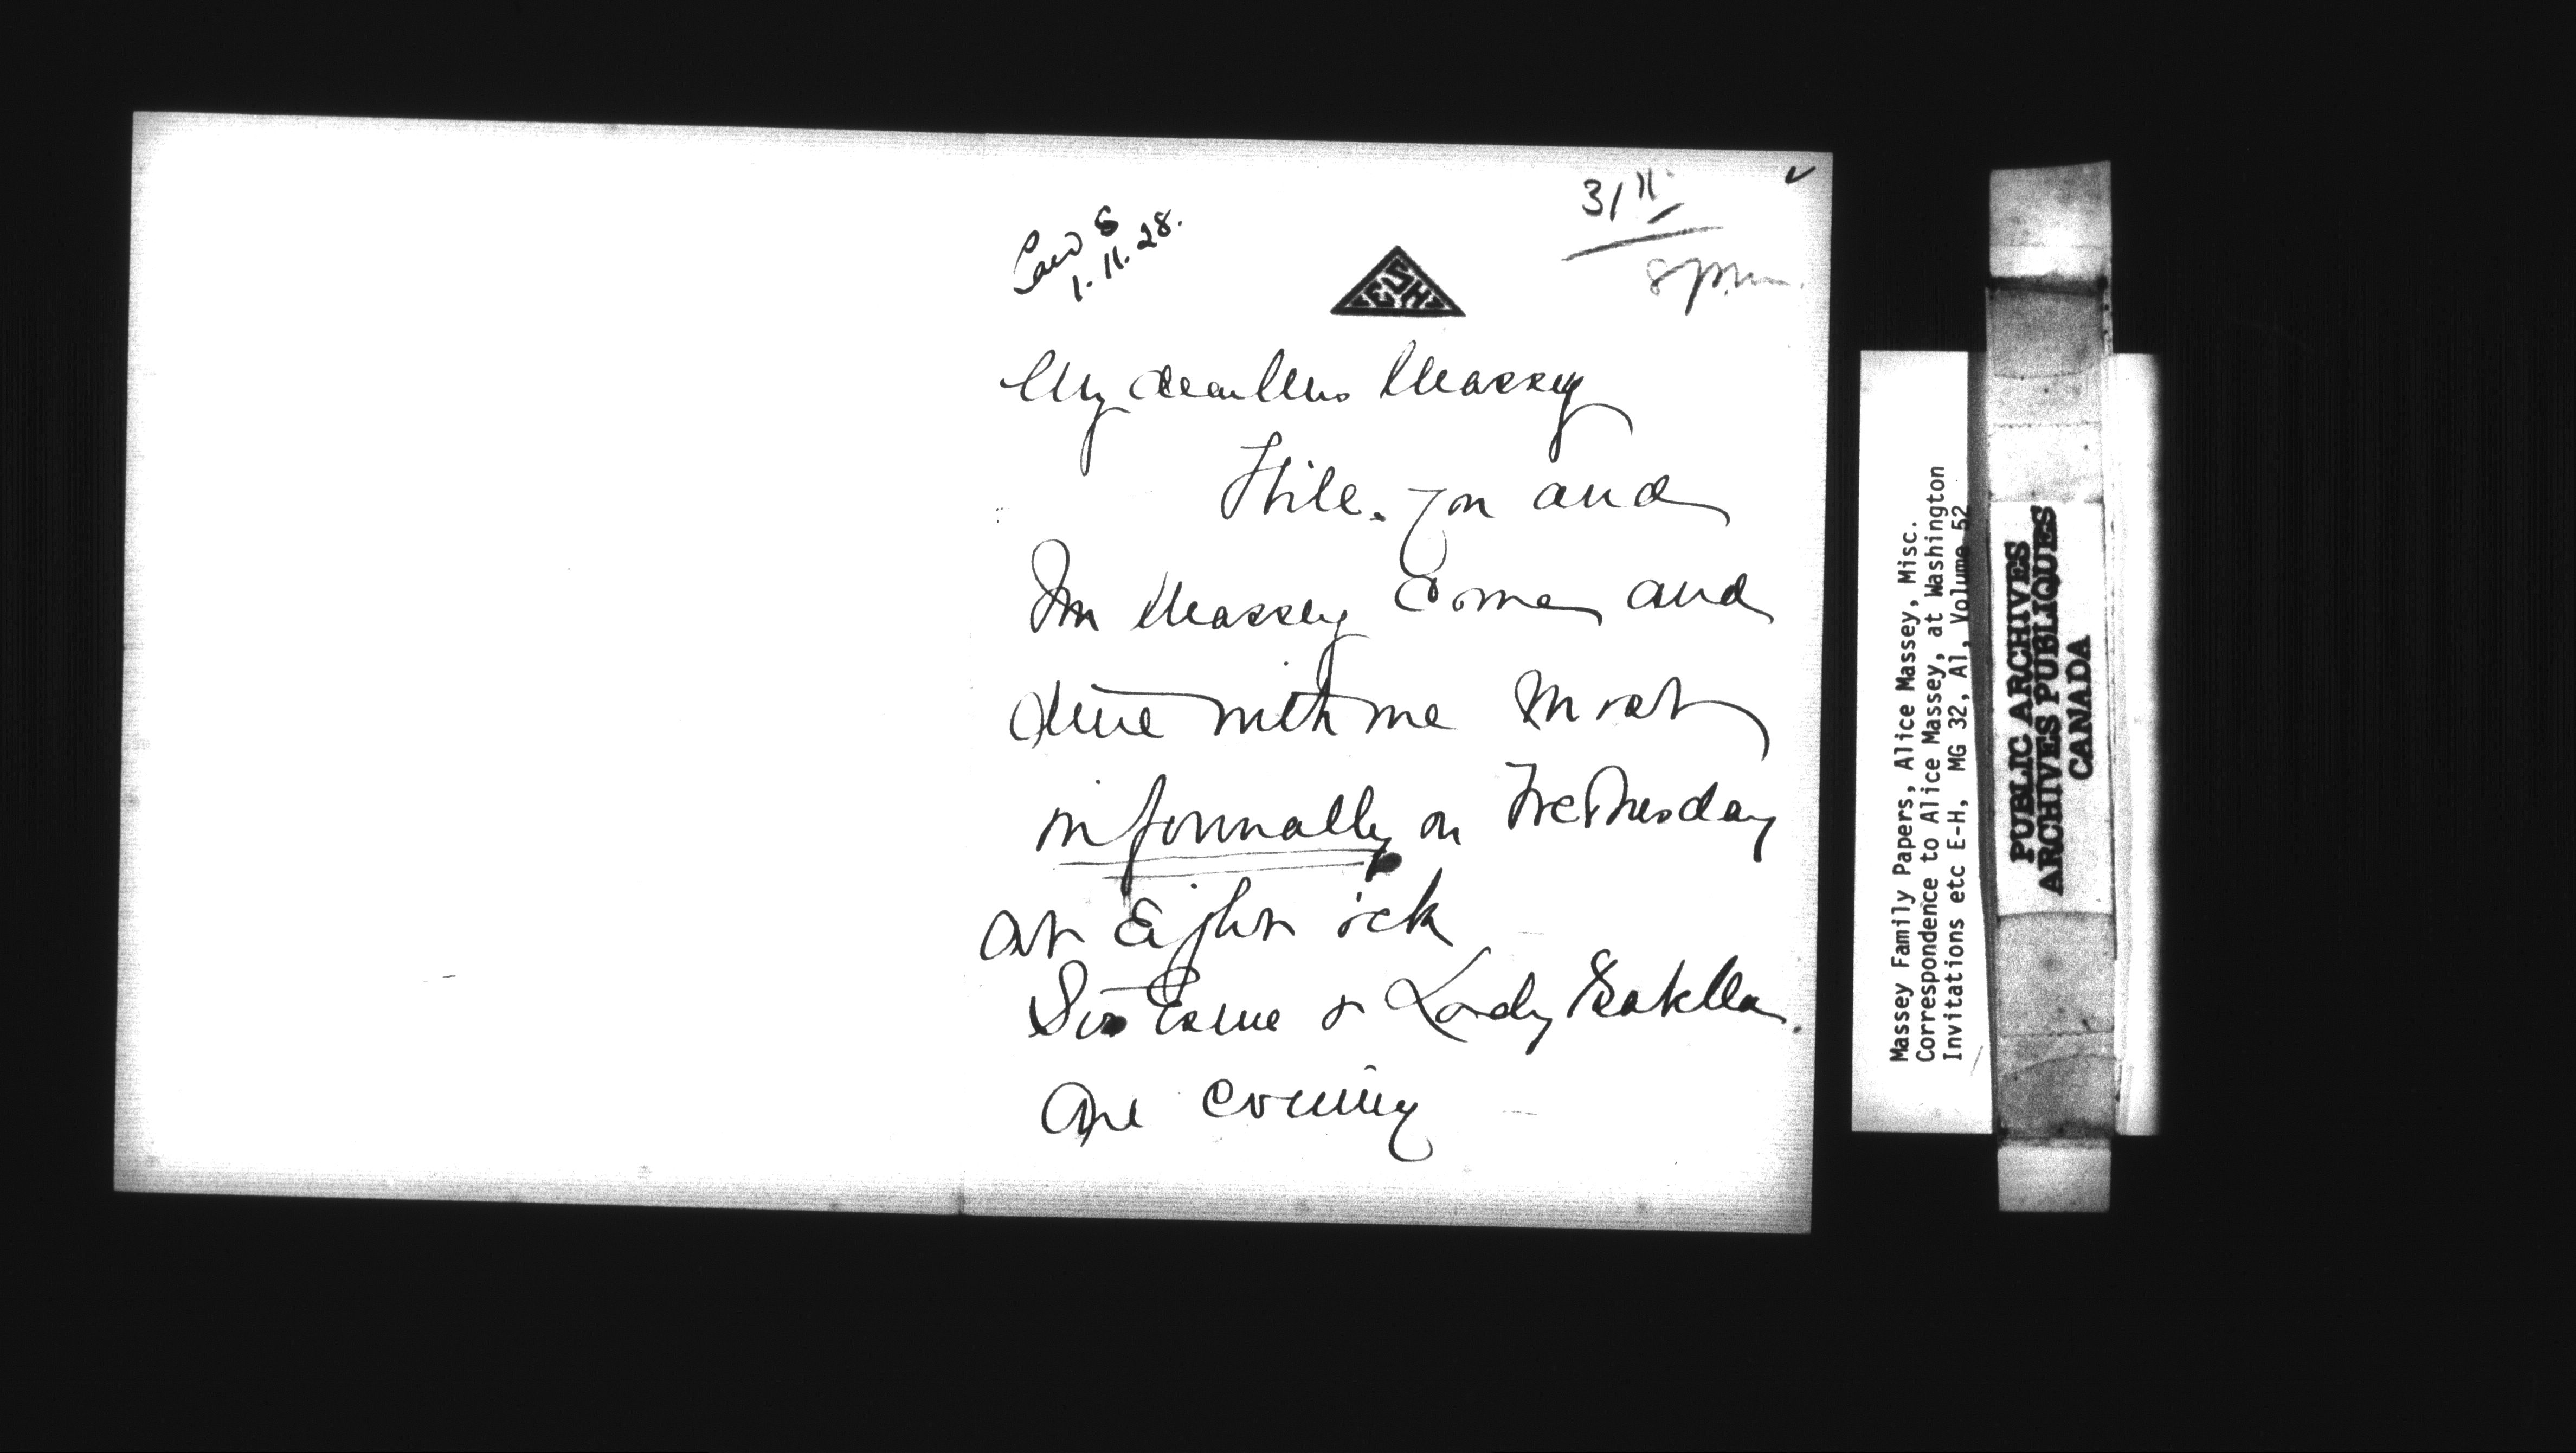 1.11.28.
3/11
8 p.m.
My dear Mrs. Massey
Will you and
Mr Massey come and
dine with me most
informally on Wednesday
at Eight ock
Sir Esme & Lady Isabella
are coming
Massey Family Papers, Alice Massey, Misc.
Correspondence to Alice Massey, at Washington
Invitations etc E-H, MG 32, A1, Volume 52
PUBLIC ARCHIVES
ARCHIVES PUBLIQUES
CANADA